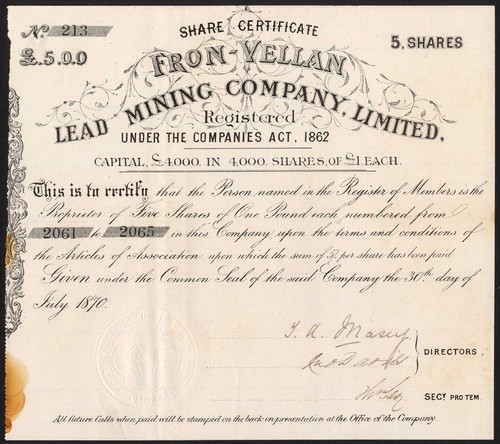 SHARE CERTIFICATE
No. 213
5, SHARES
£.5.0.0
FRON-VELLAN
LEAD MINING COMPANY, LIMITED,
Registered
UNDER THE COMPANIES ACT, 1862
CAPITAL, £4,000, IN 4,000 SHARES, OF £1 EACH.
This is to certify that the Person named in the Register of Members is the
Proprietor of Five Shares of One Pound each numbered from
2061 to 2065 in this Company upon the terms and conditions of
the Articles of Association upon which the sum of per share has been paid
Given under the Common Seal of the said Company the 30th day of
July 1870.
DIRECTORS.
SECY PRO TEM
All Future Calls when paid will be stamped on the back on presentation at the Office of the Company.